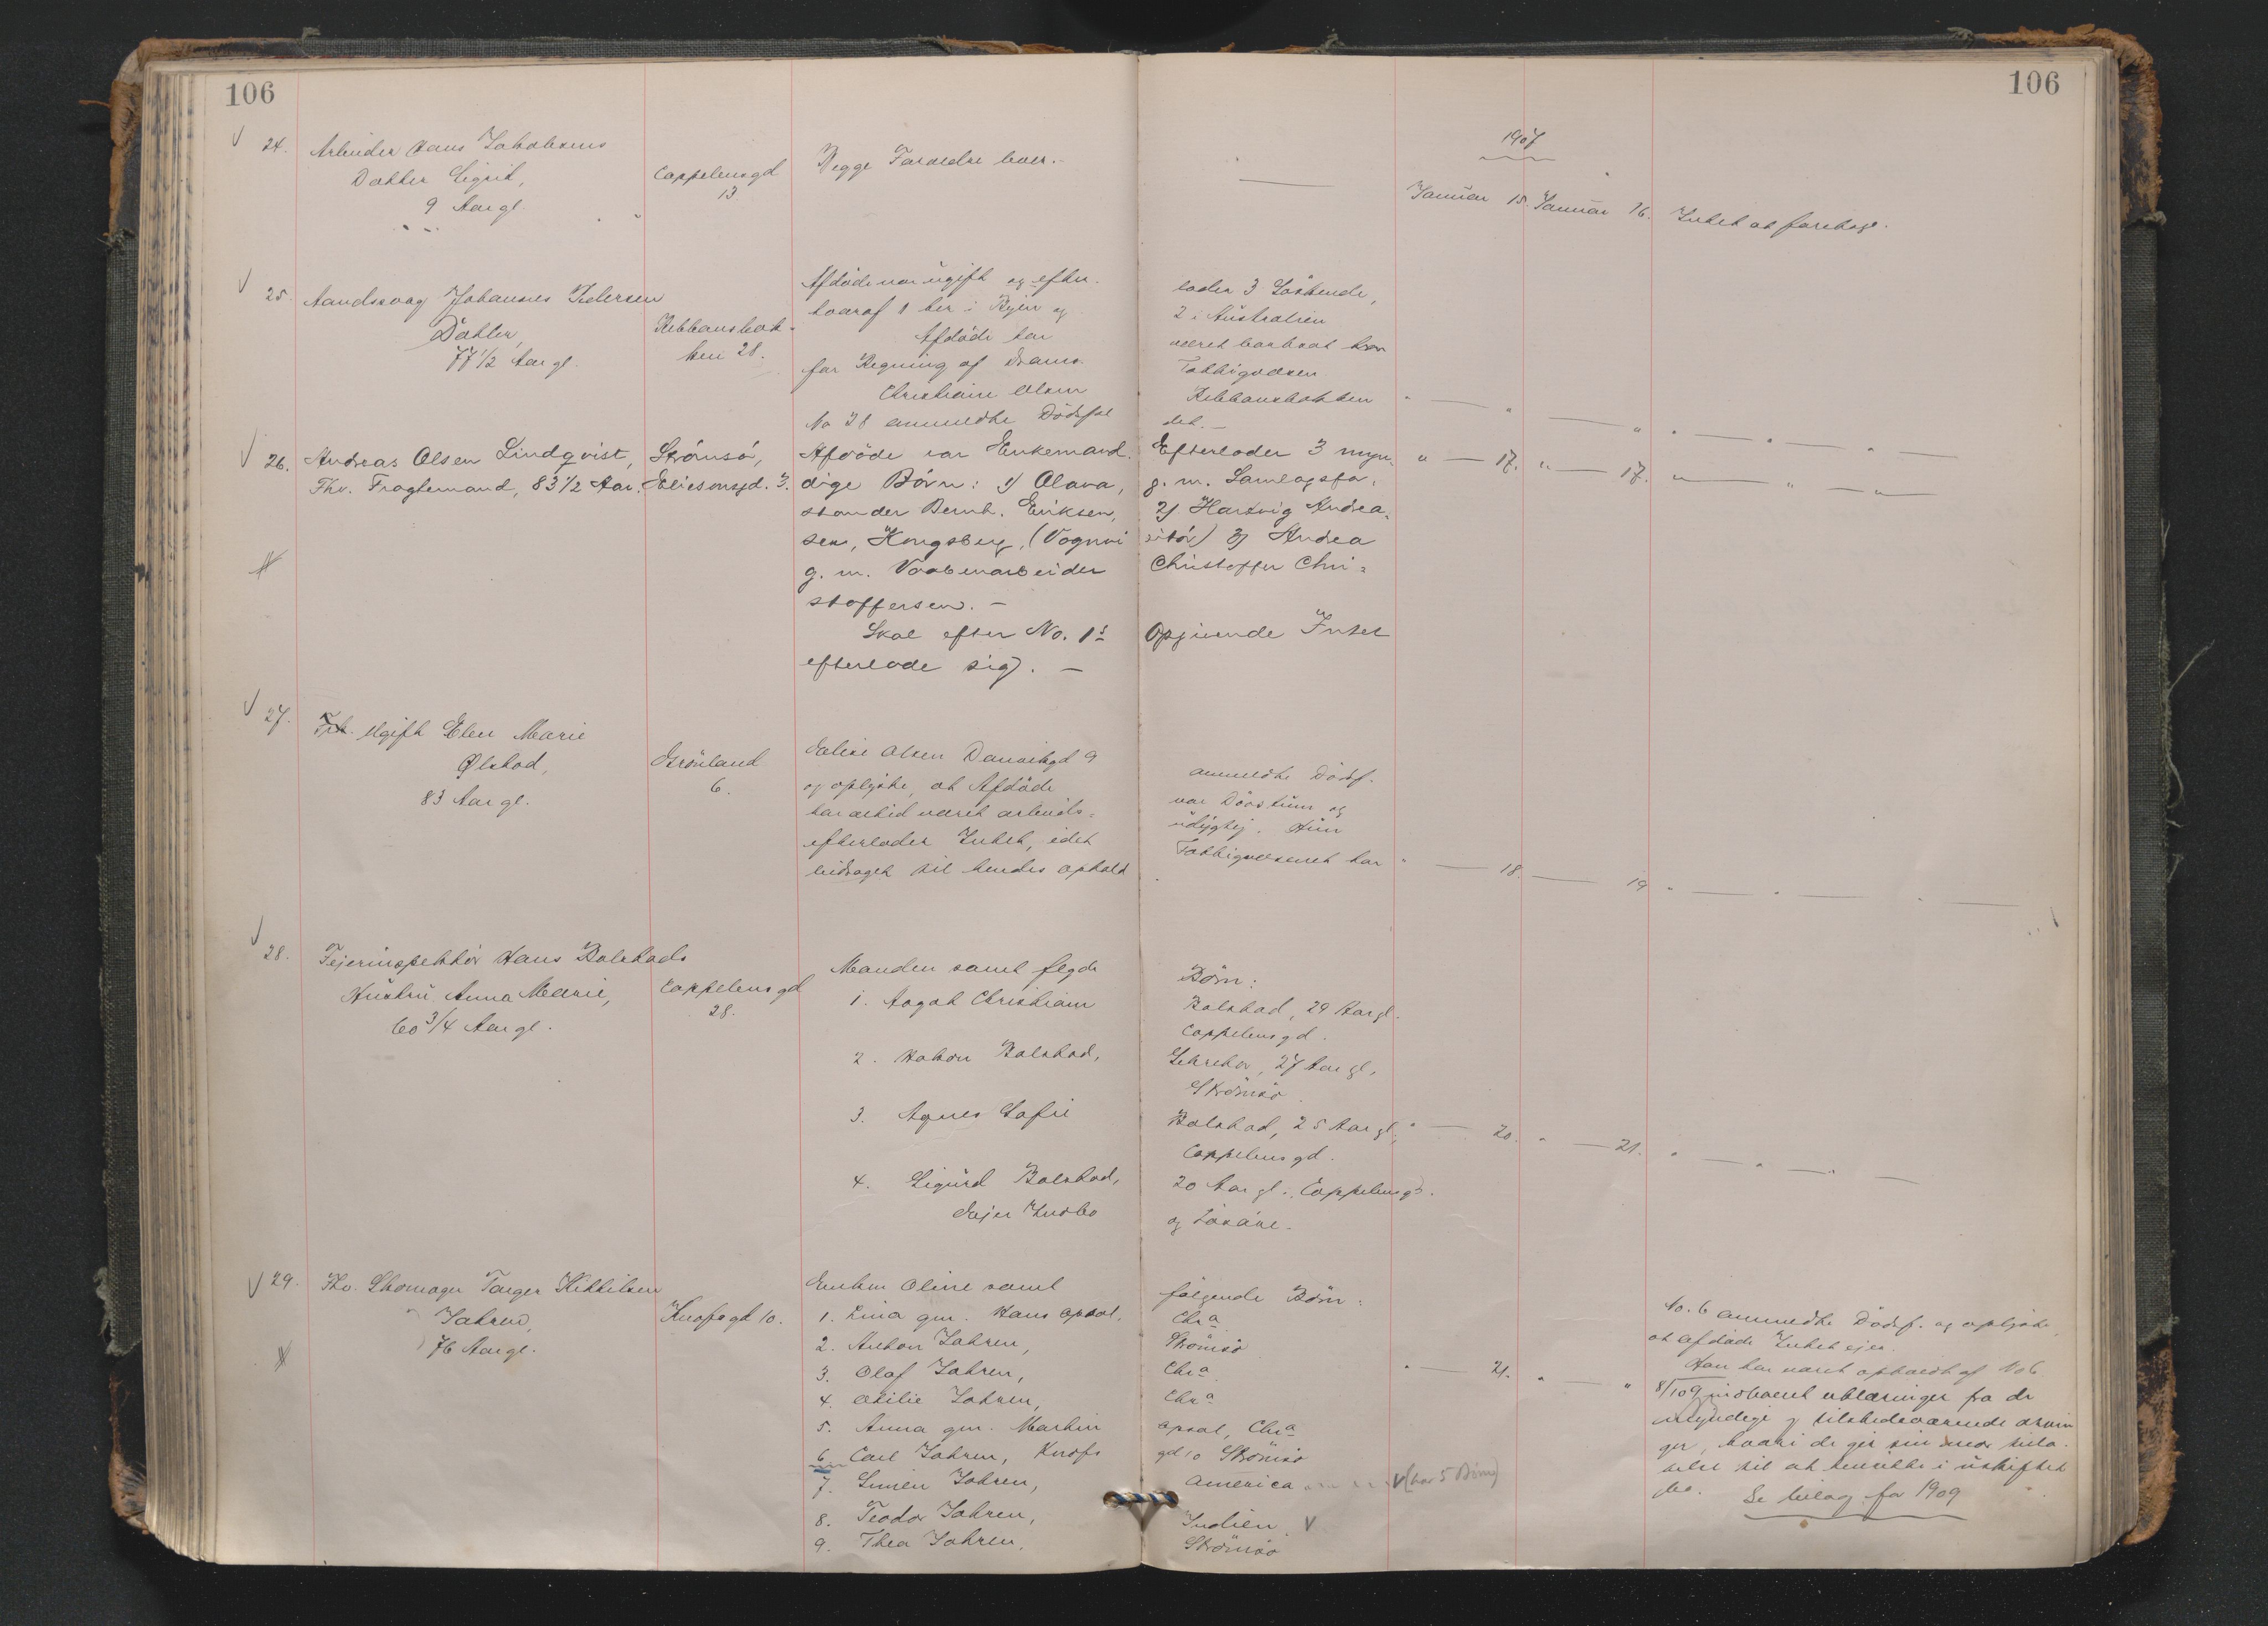 106
106
1907
24. Arbeider Hans Jakobsens
Datter Sigrid,
9 Aar gl.
Cappelensgd
13.
Begge Foraeldre lever.-
Januar 15. Januar 16. Intet at foretage.
25. Aandssvag Johannes Pedersen
Döhler,
77 1/2 Aar gl.
Kebbausbak-
ken 28.
Afdöde var ugift og efter-
lader 3 Söskende,
hvoraf 1 her i Byen og
2 i Australien
Afdöde har
været bortsat
for Regning af Drams.
Fattigvæsen
Christiane Olsen
No 28 anmeldte Dödsfal
det.-
26. Andreas Olsen Lindqvist,
Fhv. Fragtemand, 83 1/2 Aar.
Strömsö,
Eliesonsgd. 3.
Afdöde var Enkemand. Efterlader 3 myn-
dige Börn: 1) Olava, g. m. Samlagsfor-
stander Bernh. Eriksen, 2) Hartvig Andrea-
sen, Kongsberg, (Vognvi sitör) 3) Andrea
g. m. Vaabenarbeider Christoffer Chri-
stoffersen. -
Skal efter No. 1s Opgivende Intet
efterlade sig). -
" — 17. " — 17. " — " — "
27. Ugift Elen Marie
Ølstad,
83 Aar gl.
Grönland
6.
Olsen Danvikgd 9
anmeldte Dödsf.
og oplyste, at Afdöde
var Dövstum og
har altid været arbeids-
udygtig. Hun
efterlader Intet, idet
Fattigvæsenet har
bidraget til hendes ophold
" — 18. — 19 " — " — " —
28. Fejerinspektör Hans Bolstads
Hustru Anna Marie,
60 3/4 Aar gl.
Cappelensgd
28.
Manden samt flgde
Börn:
1. Aagot Christiane
Bolstad, 29 Aar gl.
Cappelensgd.
2. Haakon Bolstad,
27 Aar gl,
Strömsö.
3. Agnes Sofie
Bolstad, 25 Aar gl,
Cappelensgd.
4. Sigurd Bolstad,
20 Aar gl., Cappelensgd.
Ejer Indbo
og Lösöre.
" — 20. " — 21. " — " — " —
29. Fhv. Skomager Torger Kittilsen
Jahren,
76 Aar gl.
Knofsgd 10.
Enken Oline samt
følgende Börn:
1. Lina gm. Hans Opsal,
Chra
2. Anton Jahren,
Strömsö
3. Olaf Jahren,
Chra
4. Otilie Jahren,
Chra
5. Anna gm. Martin
Opsal, Chra
6 Carl Jahren, Knofs
gd 10 Strömsö
7. Simen Jahren,
America (har 5 Börn)
8. Teodor Jahren,
Indien
9. Thea Jahren,
Strömsö
" — 21. " — "
No. 6 anmeldte Dödsf. og oplyste,
at afdöde Intet ejer.
Han har været opholdt af No 6.
8/1 09 indhentet erklæringer fra de
myndige og tilstedeværende arvin
ger, hvori de gir sin
til at hensidde i uskiftet
bo.
Se bilag for 1909